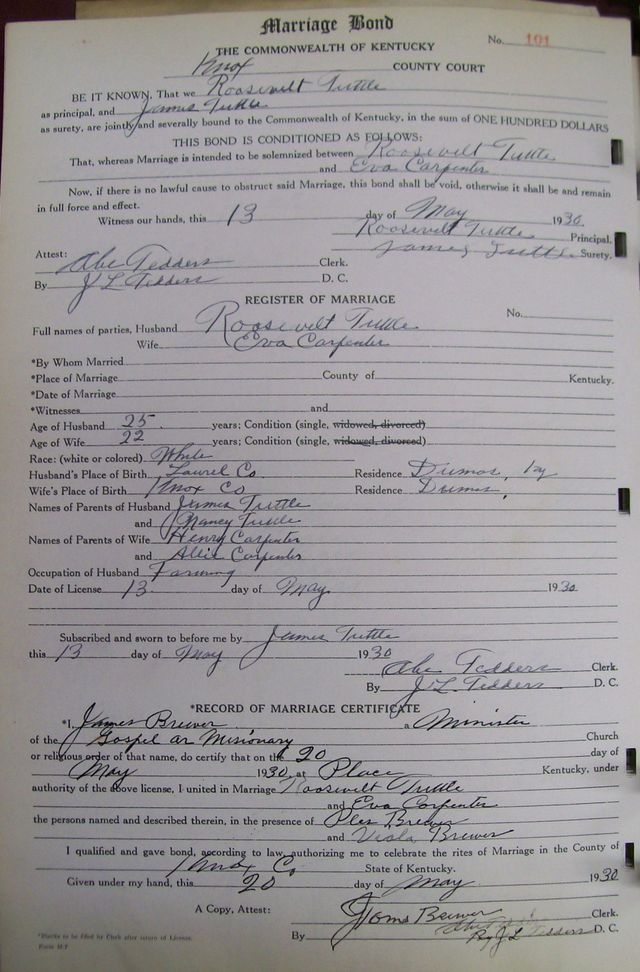 Marriage Bond
No. 101
THE COMMONWEALTH OF KENTUCKY
Knox COUNTY COURT
BE IT KNOWN, That we Roosevelt Tuttle
as principal, and James Tuttle
as surety, are jointly and severally bound to the Commonwealth of Kentucky, in the sum of ONE HUNDRED DOLLARS
THIS BOND IS CONDITIONED AS FOLLOWS:
That, whereas Marriage is intended to be solemnized between Roosevelt Tuttle
and Eva Carpenter
Now, if there is no lawful cause to obstruct said Marriage, this bond shall be void, otherwise it shall be and remain
in full force and effect.
Witness our hands, this 13 day of May 1930
Roosevelt Tuttle Principal.
James Tuttle Surety.
Attest:
Abe Tedders Clerk.
By J L Tedders D. C.
REGISTER OF MARRIAGE
No.
Full names of parties, Husband Roosevelt Tuttle
Wife Eva Carpenter
*By Whom Married
*Place of Marriage County of Kentucky.
*Date of Marriage
*Witnesses and
Age of Husband 25 years; Condition (single, widowed, divorced)
Age of Wife 22 years; Condition (single, widowed, divorced)
Race: (white or colored) White
Husband's Place of Birth Laurel Co Residence Dumos, Ky
Wife's Place of Birth Knox Co Residence Dumos,
Names of Parents of Husband James Tuttle
and Nancy Tuttle
Names of Parents of Wife Henry Carpenter
and Allie Carpenter
Occupation of Husband Farming
Date of License 13 day of May 1930
Subscribed and sworn to before me by James Tuttle
this 13 day of May 1930
Abe Tedders Clerk.
By J. L. Tedders D. C.
*RECORD OF MARRIAGE CERTIFICATE
*I, James Brewer a Minister
of the Gospel ar Misionary Church
or religious order of that name, do certify that on the 20 day of
May 1930, at Place Kentucky, under
authority of the above license, I united in Marriage Roosevelt Tuttle
and Eva Carpenter
the persons named and described therein, in the presence of Ples Brewer
and Viola Brewer
I qualified and gave bond, according to law, authorizing me to celebrate the rites of Marriage in the County of
Knox Co State of Kentucky.
Given under my hand, this 20 day of May 1930
A Copy, Attest: Brewer Clerk.
By By J L Tedders D. C.
*Blanks to be filed by Clerk after return of License.
Form